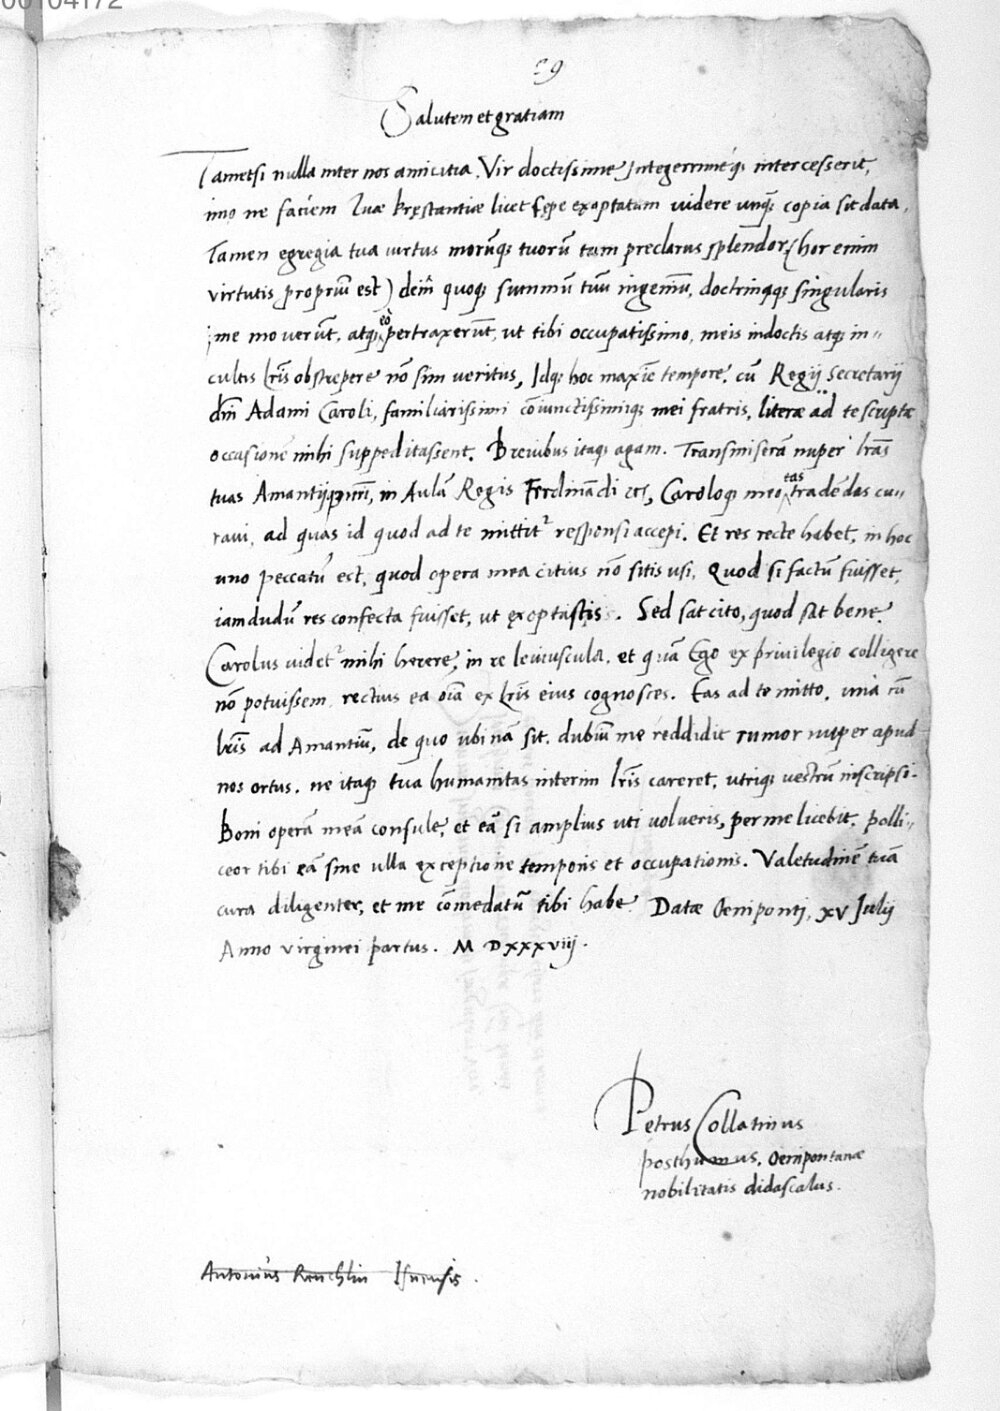 00104172
29
Salutem et gratiam
Tametsi nulla inter nos amicitia, Vir doctissime Integerrimeq́ꝫ intercesserit,
imo ne faciem Tuæ Præstantiæ licet sępe exoptatam videre unq̃ꝫ copia sit data,
Tamen egregia tua virtus morũqꝫ tuorũ tam preclarus splendor (hor enim
virtutis propriũ est) dein̄ quoqꝫ summũ tuũ ingeniũ, doctrinaqꝫ singularis
me moverũt, atqꝫ eò pertraxerũt, ut tibi occupatissimo, meis indoctis atqꝫ in=
cultis lr̃is obstrepere nõ sim veritus, Idqꝫ hoc maxĩe tempore, cũ Regij Secretarij
dñi Adami Caroli, familiarissimi cõiunctissimiqꝫ mei fratris, literæ ad te scriptæ
occasionẽ mihi suppeditassent. Brevibus itaqꝫ agam. Transmiserã nuper lr̃as
tuas Amantijqꝫ nr̃i, in Aulã Regis Ferdinãdi etc, Caroloqꝫ meo eas tradẽdas cu=
ravi, ad quas id quod ad te mittit᷑ responsi accepi. Et res recte habet, in hoc
uno peccatũ est, quod opera mea citius nõ sitis usi, Quod si factũ fuisset,
iamdudũ res confecta fuisset, ut exoptastis. Sed sat cito, quod sat bene.
Carolus videt᷑ mihi herere, in re leviuscula, et quã Ego ex privilegio colligere
nõ potuissem, rectius ea oĩa ex lr̃is eius cognosces. Eas ad te mitto, unà cũ
lr̃is ad Amantiũ, de quo ubi nã sit, dubiũ me reddidit rumor nuper apud
nos ortus, ne itaqꝫ tua humanitas interim lr̃is careret, utriqꝫ vestrũ inscripsi.
Boni operã meã consule, et eã si amplius uti volueris, per me licebit, polli=
ceor tibi eã sine ulla exceptione temporis et occupationis. Valetudinẽ tuã
cura diligenter, et me cõmẽdatũ tibi habe. Datæ Oeniponti, XV Julij
Anno virginei partus. M DXXXVIIJ.
Petrus Collatinus
posthumus, Oenipontanæ
nobilitatis didascalus.
Antonius Reuchlin Isnensis.